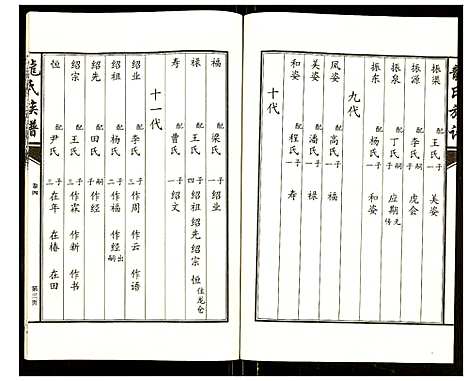 振渠 配王氏 一子 美姿
振源 配李氏 一子 虎会
振东 配丁氏 一子 应期
振泉 配杨氏 一子 和姿
九代
凤姿 配高氏 一子 福
美姿 配潘氏 一子 禄
和姿 配程氏 一子 寿
十代
福 配梁氏 一子 绍业
禄 配王氏 四子 绍祖 绍先 绍宗 恒
寿 配曹氏 一子 绍文
十一代
绍业 配李氏 三子 作周 作云 作语
绍祖 配杨氏 二子 作福 作经出嗣
绍先 配田氏 嗣子 作经
绍宗 配王氏 三子 作霖 作新 作书
恒 配尹氏 三子 在年 在椿 在田
龙氏族谱
卷四
第三页